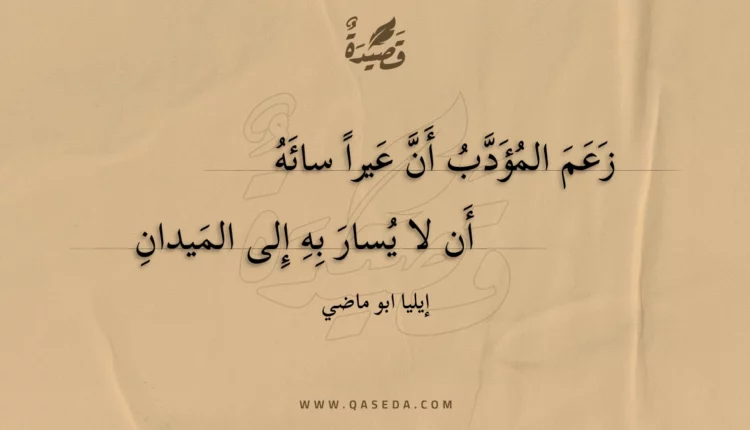 قَصِيدَةٌ
زَعَمَ المُؤَدَّبُ أَنَّ عَيراً سائَهُ
أَن لا يُسارَ بِهِ إِلى المَيدانِ
إيليا ابو ماضي
WWW.QASEDA.COM